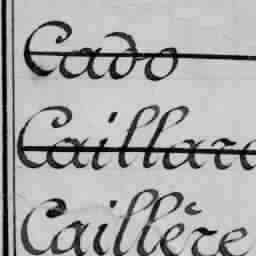 Cado
Caillard
Caillère